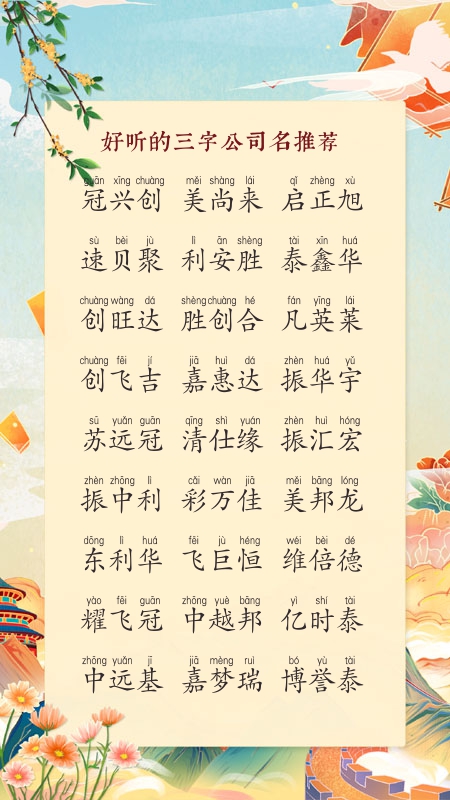 好听的三字公司名推荐
guān xīng chuàng měi shàng lái qǐ zhèng xù
冠兴创 美尚来 启正旭
sù bèi jù lì ān shèng tài xīn huá
速贝聚 利安胜 泰鑫华
chuàng wàng dá shèng chuàng hé fán yīng lái
创旺达 胜创合 凡英莱
chuàng fēi jí jiā huì dá zhèn huá yǔ
创飞吉 嘉惠达 振华宇
sū yuǎn guān qīng shì yuán zhèn huì hóng
苏远冠 清仕缘 振汇宏
zhèn zhōng lì cǎi wàn jiā měi bāng lóng
振中利 彩万佳 美邦龙
dōng lì huá fēi jù héng wéi bèi dé
东利华 飞巨恒 维倍德
yào fēi guān zhōng yuè bāng yì shí tài
耀飞冠 中越邦 亿时泰
zhōng yuǎn jī jiā mèng ruì bó yù tài
中远基 嘉梦瑞 博誉泰